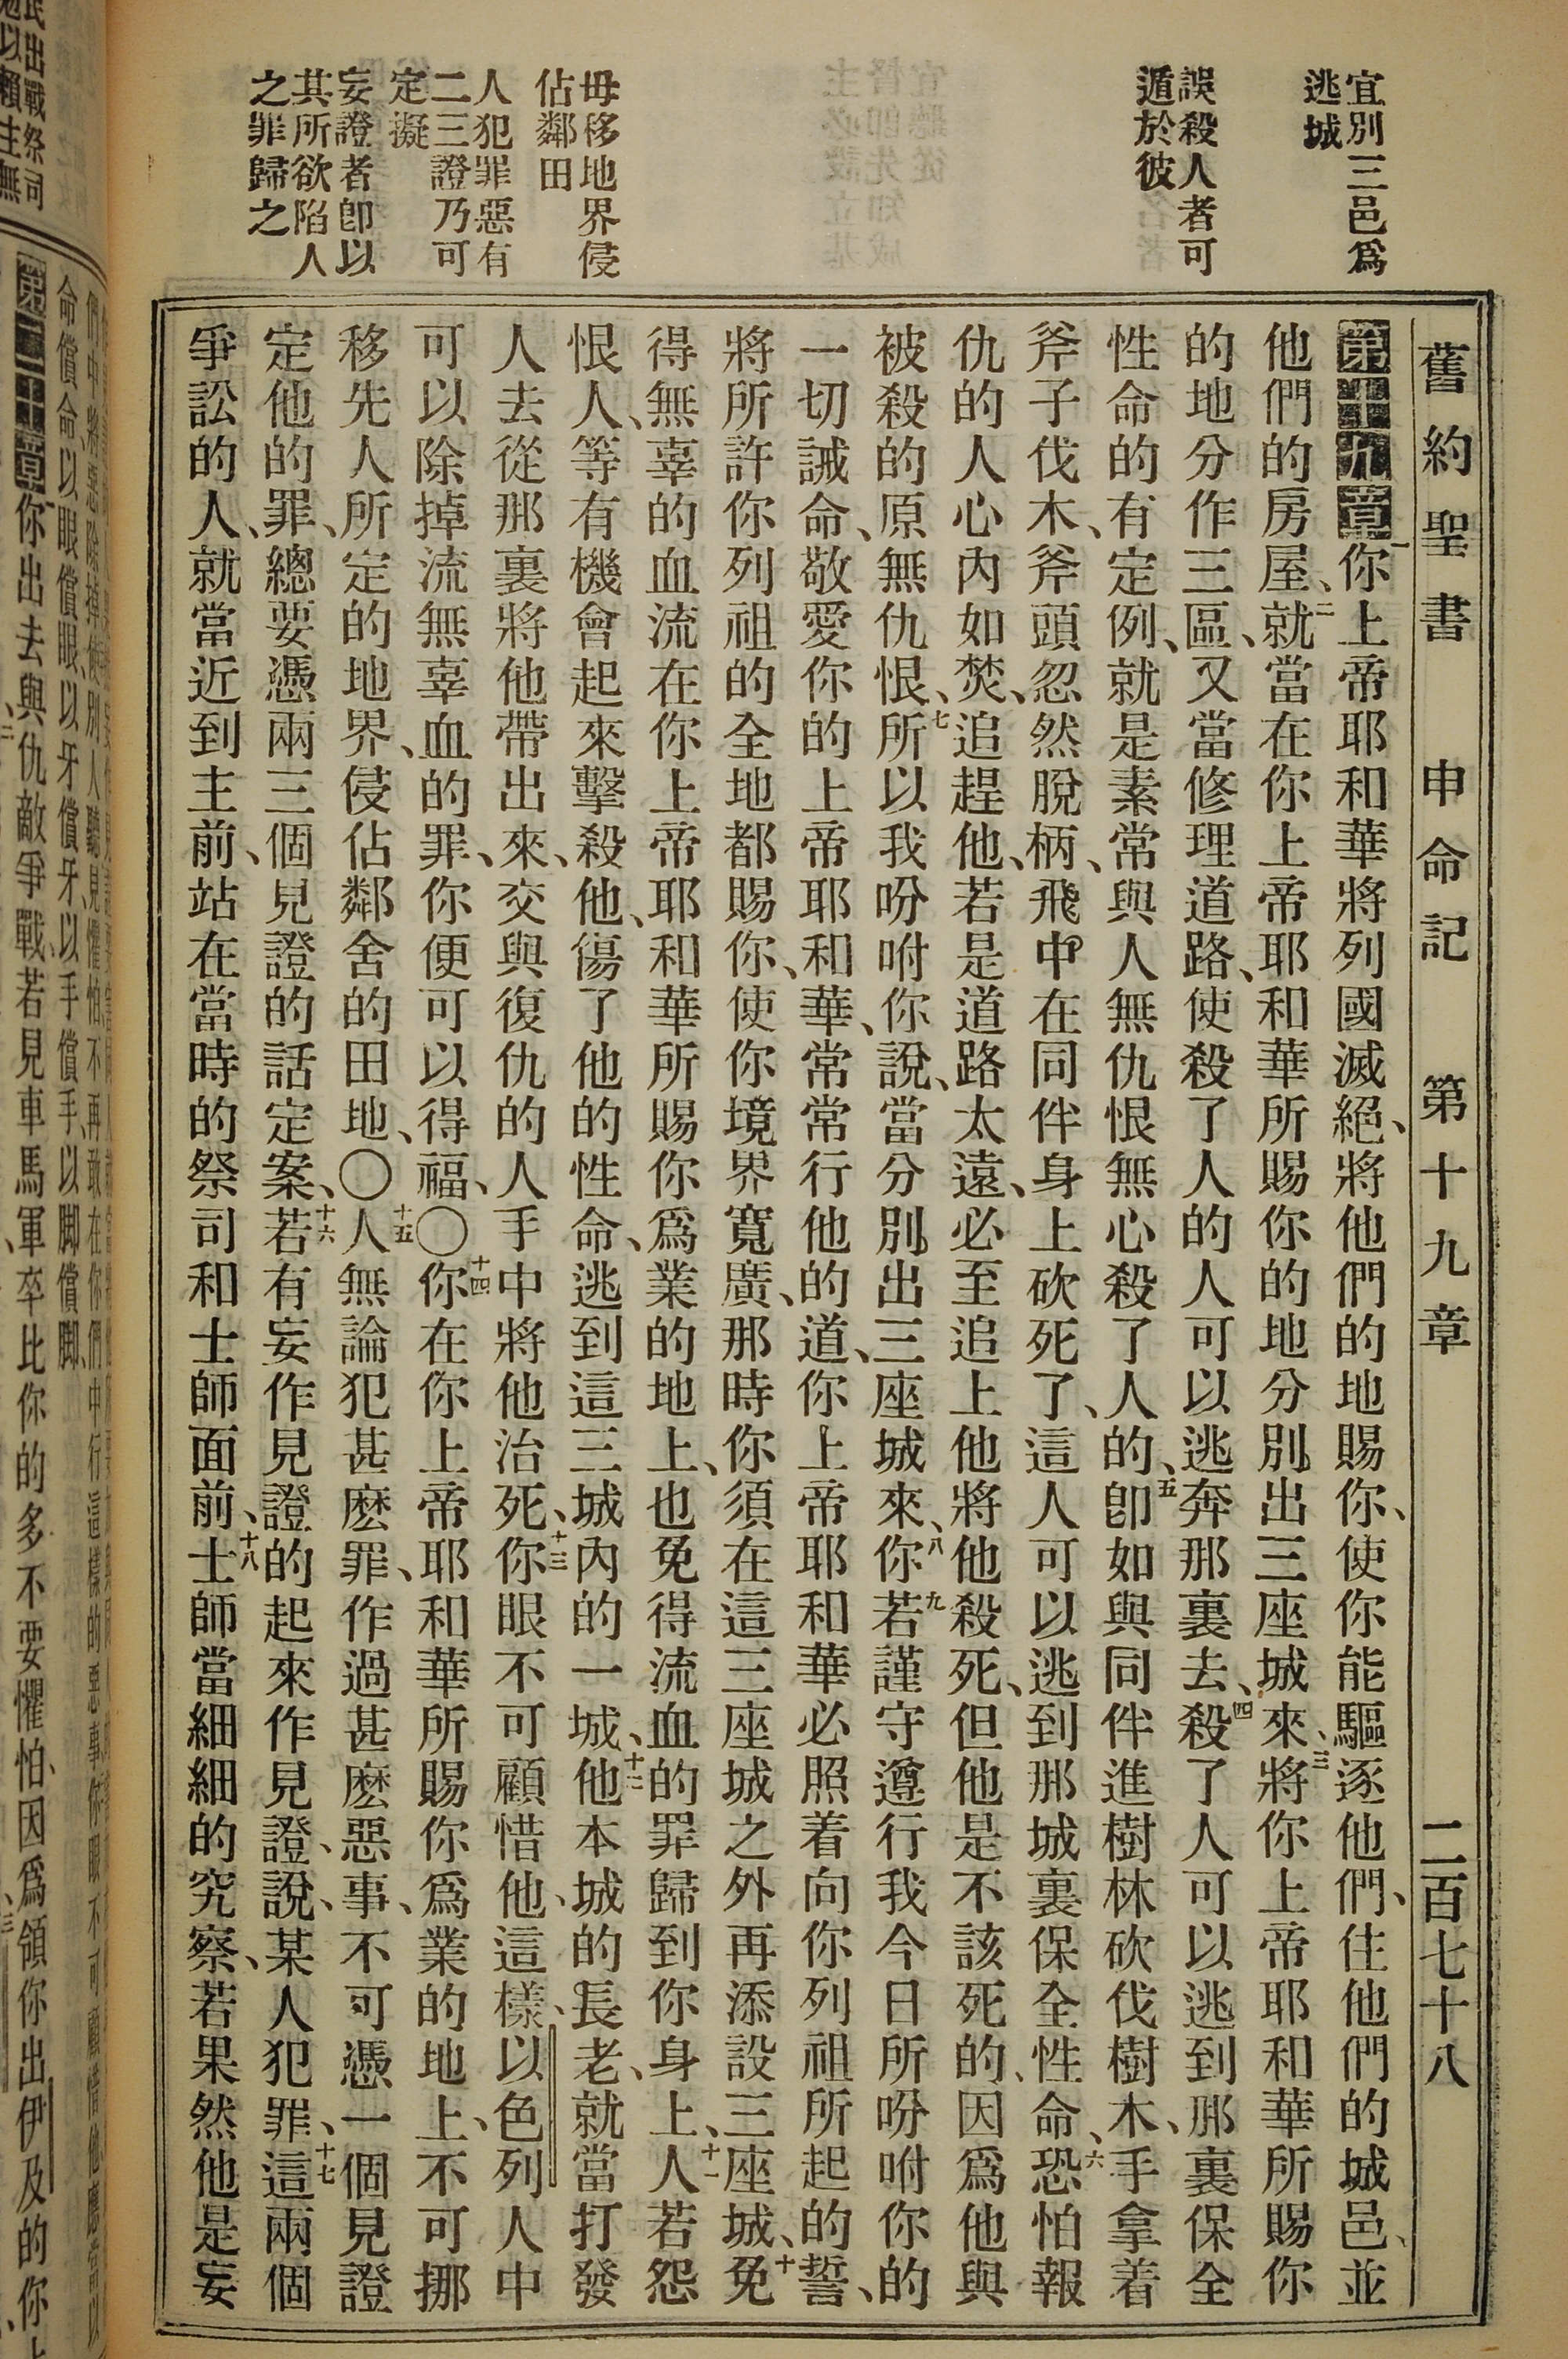 宜別三邑爲
逃城
誤殺人者可
遁於彼
毋移地界侵
佔鄰田
人犯罪惡有
二三證乃可
定擬
妄證者卽以
其所欲陷人
之罪歸之
舊約聖書 申命記 第十九章 二百七十八
第十九章一你上帝耶和華將列國滅絕、將他們的地賜你、使你能驅逐他們、住他們的城邑、並
他們的房屋、二就當在你上帝耶和華所賜你的地分別出三座城來、三將你上帝耶和華所賜你
的地分作三區、又當修理道路、使殺了人的人可以逃奔那裏去、四殺了人可以逃到那裏保全
性命的有定例、就是素常與人無仇恨無心殺了人的、五卽如與同伴進樹林砍伐樹木、手拿着
斧子伐木、斧頭忽然脫柄、飛中在同伴身上砍死了、這人可以逃到那城裏保全性命、六恐怕報
仇的人心內如焚、追趕他、若是道路太遠、必至追上他將他殺死、但他是不該死的、因爲他與
被殺的原無仇恨、七所以我吩咐你說、當分別出三座城來、八你九若謹守遵行我今日所吩咐你的
一切誡命、敬愛你的上帝耶和華、常常行他的道、你上帝耶和華必照着向你列祖所起的誓、
將所許你列祖的全地都賜你、使你境界寬廣、那時你須在這三座城之外再添設三座城、十免
得無辜的血流在你上帝耶和華所賜你爲業的地上、也免得流血的罪歸到你身上、十一人若怨
恨人、等有機會起來擊殺他、傷了他的性命、逃到這三城內的一城、十二他本城的長老、就當打發
人去從那裏將他帶出來、交與復仇的人手中將他治死、十三你眼不可顧惜他、這樣、以色列人中
可以除掉流無辜血的罪、你便可以得福、〇十四你在你上帝耶和華所賜你爲業的地上、不可挪
移先人所定的地界、侵佔鄰舍的田地、〇十五人無論犯甚麽罪、作過甚麽惡事、不可憑一個見證
定他的罪、總要憑兩三個見證的話定案、十六若有妄作見證的起來作見證、說、某人犯罪、十七這兩個
爭訟的人、就當近到主前、站在當時的祭司和士師面前、十八士師當細細的究察、若果然他是妄
命償命以眼償眼、以牙償牙以手償手、以脚償脚、
第二十章一你出去與仇敵爭戰若見車馬軍卒比你的多不要懼怕、因爲領你出伊及的你上